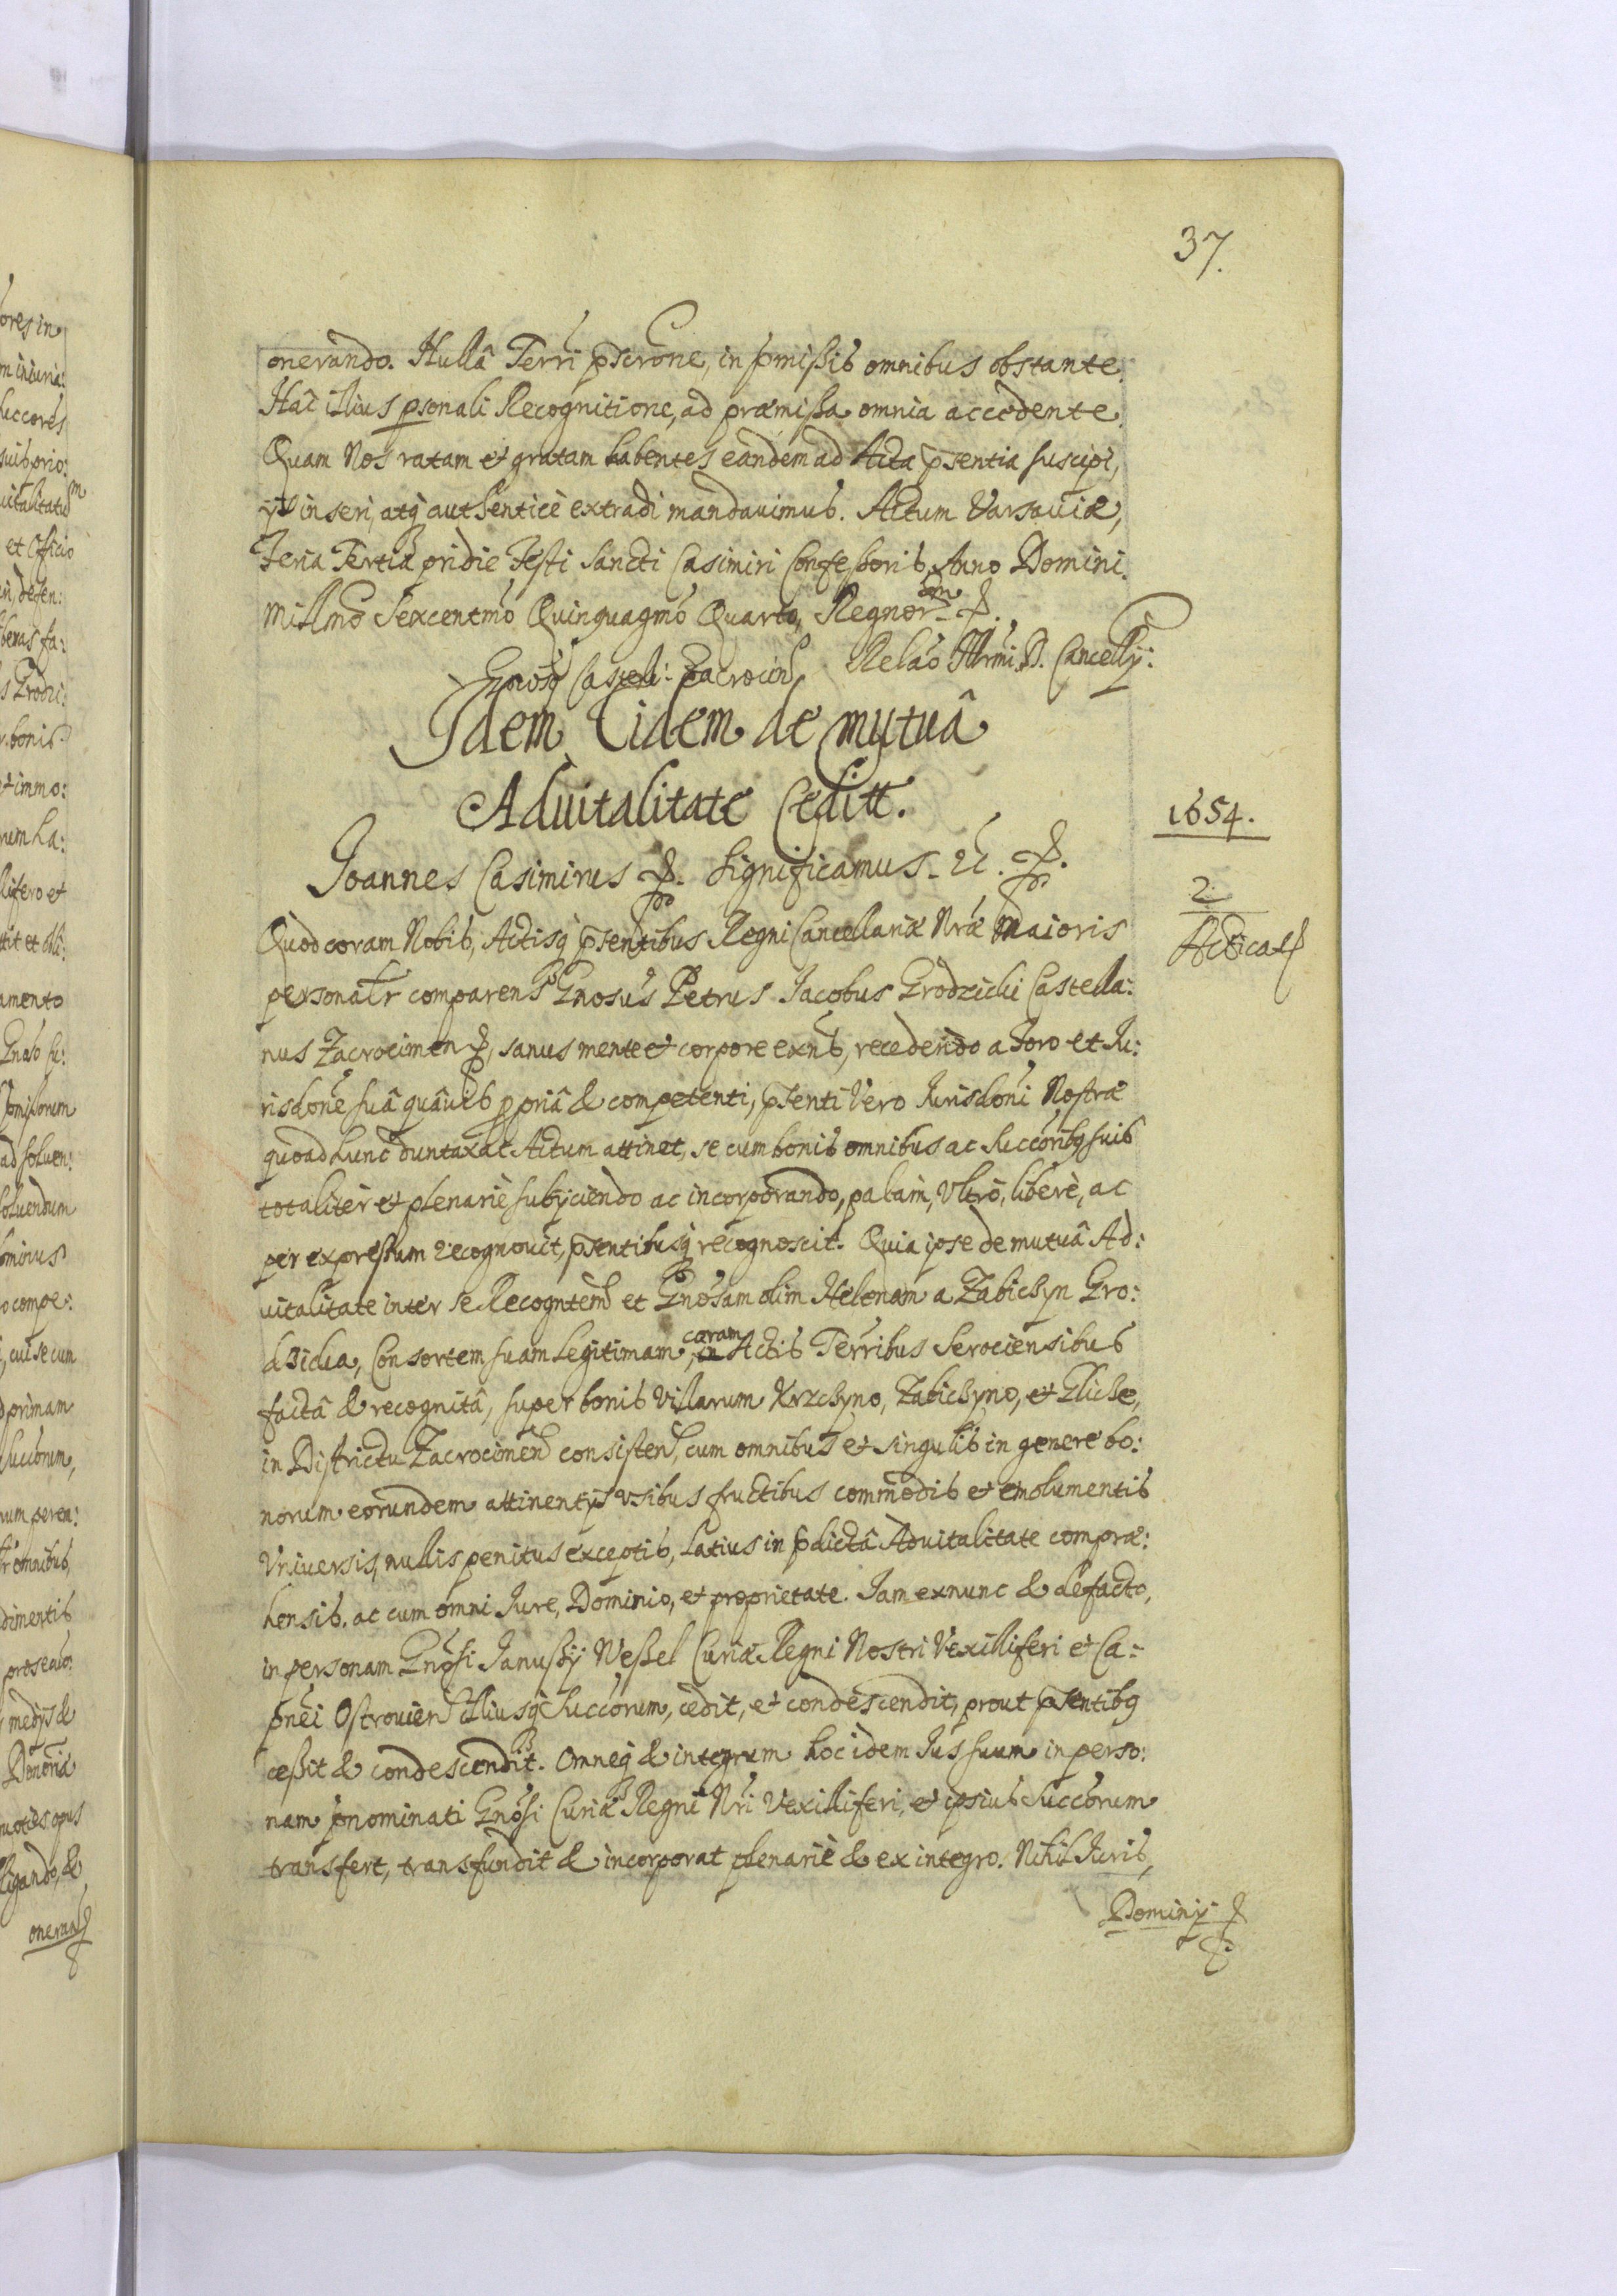 37.
onerando. Nullâ Terri pscrõne, in p̃missis omnibus obstante.
Hac illius psonali Recognitione, ad præmissa omnia accedente
Quam Nos ratam et gratam habentes eandem ad Acta p̃sentia suscipi,
ijs inseri, atq̃ authenticè extradi mandauimus. Actum Varsauiæ,
Feria Tertia pridie Festi Sancti Casimiri Confessoris Anno Domini
Millmo Sexcentmo Quinquagmo Quarto, Regnor
Gnosus Castell: Zacrocim Relaõ Illrmi D. Cancellrij:
Idem Eidem de mutuâ
Aduitalitate Cedit.
1654.
Joannes Casimirus Significamus
2
Acticat
Quod coram Nobis, Actisq̃ p̃sentibus Regni Cancellariæ Nræ Maioris
personalr comparens Gnosus Petrus Jacobus Grodzicki Castella:
nus Zacrocimen, sanus mente et corpore exns, recedendo a Foro et Ju:
risdone suâ quâuis ppriâ & competenti, p̃senti Vero Jurisdoni Nostræ
quoad hunc duntaxat Actum attinet, se cum bonis omnibus ac Succoribq suis
totaliter et plenariè subijciendo ac incorporando, palam, Vltrò, liberè, ac
per expressum recognouit, p̃sentibusq̃ recognoscit. Quia ipse de mutuâ Ad:
uitalitate inter se Recogntem et Gnosam olim Helenam a Zabiczyn Gro:
dzicka, Consortem suam Legitimam, in coram Actis Terribus Serociensibus
factâ & recognitâ, super bonis Villarum Krzchyno, Zabichyno, et Gliche,
in Districtu Zacrocimen consisten, cum omnibus et singulis in genere bo:
norum eorundem attinentijs vsibus fructibus commodis et emolumentis
Vniuersis, nullis penitus exceptis, latius in p̃dictâ Aduitalitate compræ:
hensis. ac cum omni Jure, Dominio, et proprietate. Jam exnunc & defacto,
in personam Gnosi Janussij Wessel Curiæ Regni Nostri Vexilliferi et Ca:
pnei Ostrouien illiusq̃ Succorum, cedit, et condescendit, prout p̃sentibq
cessit & condescendit. Omneq̃ & integrum hoc idem Jus suum in perso:
nam p̃nominati Gnosi Curiæ Regni Nri Vexilliferi, et ipsius Succorum
transfert, transfundit & incorporat plenariè & ex integro. Nihil Juris,
Dominij